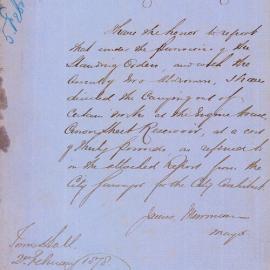 I have the honor to report
that under the provisions of the
Standing Orders, and with the
Aldermen, I have
directed the carrying out of
certain works at the Engine House,
Crown Street Reservoir, at a cost
of thirty pounds as referred to
in the attached Report from the
City Surveyor for the City Architect.
James Merriman
Mayor
Town Hall
2d February 1878